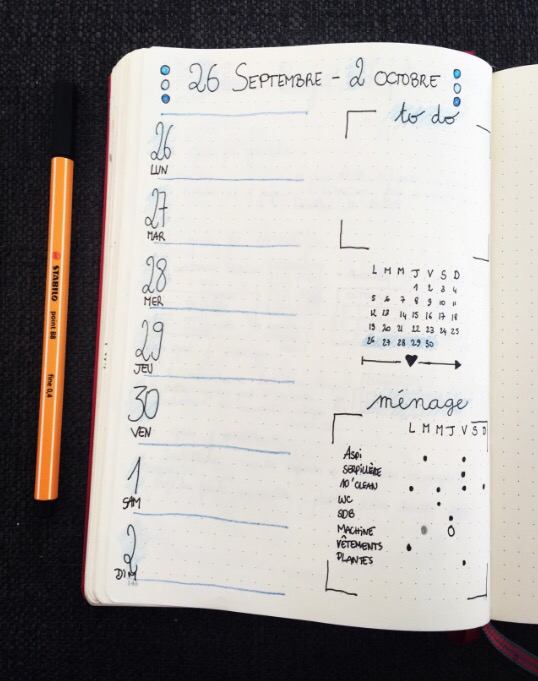 26 SEPTEMBRE - 2 OCTOBRE
26
LUN
27
MAR
28
MER
29
JEU
30
VEN
1
SAM
2
DIM
to do
L M M J V S D
1 2 3 4
5 6 7 8 9 10 11
12 13 14 15 16 17 18
19 20 21 22 23 24 25
26 27 28 29 30
ménage
L M M J V S D
ASPI
SERPILLÈRE
10' CLEAN
WC
SDB
MACHINE
VÊTEMENTS
PLANTES
STABILO point 88 fine 0,4